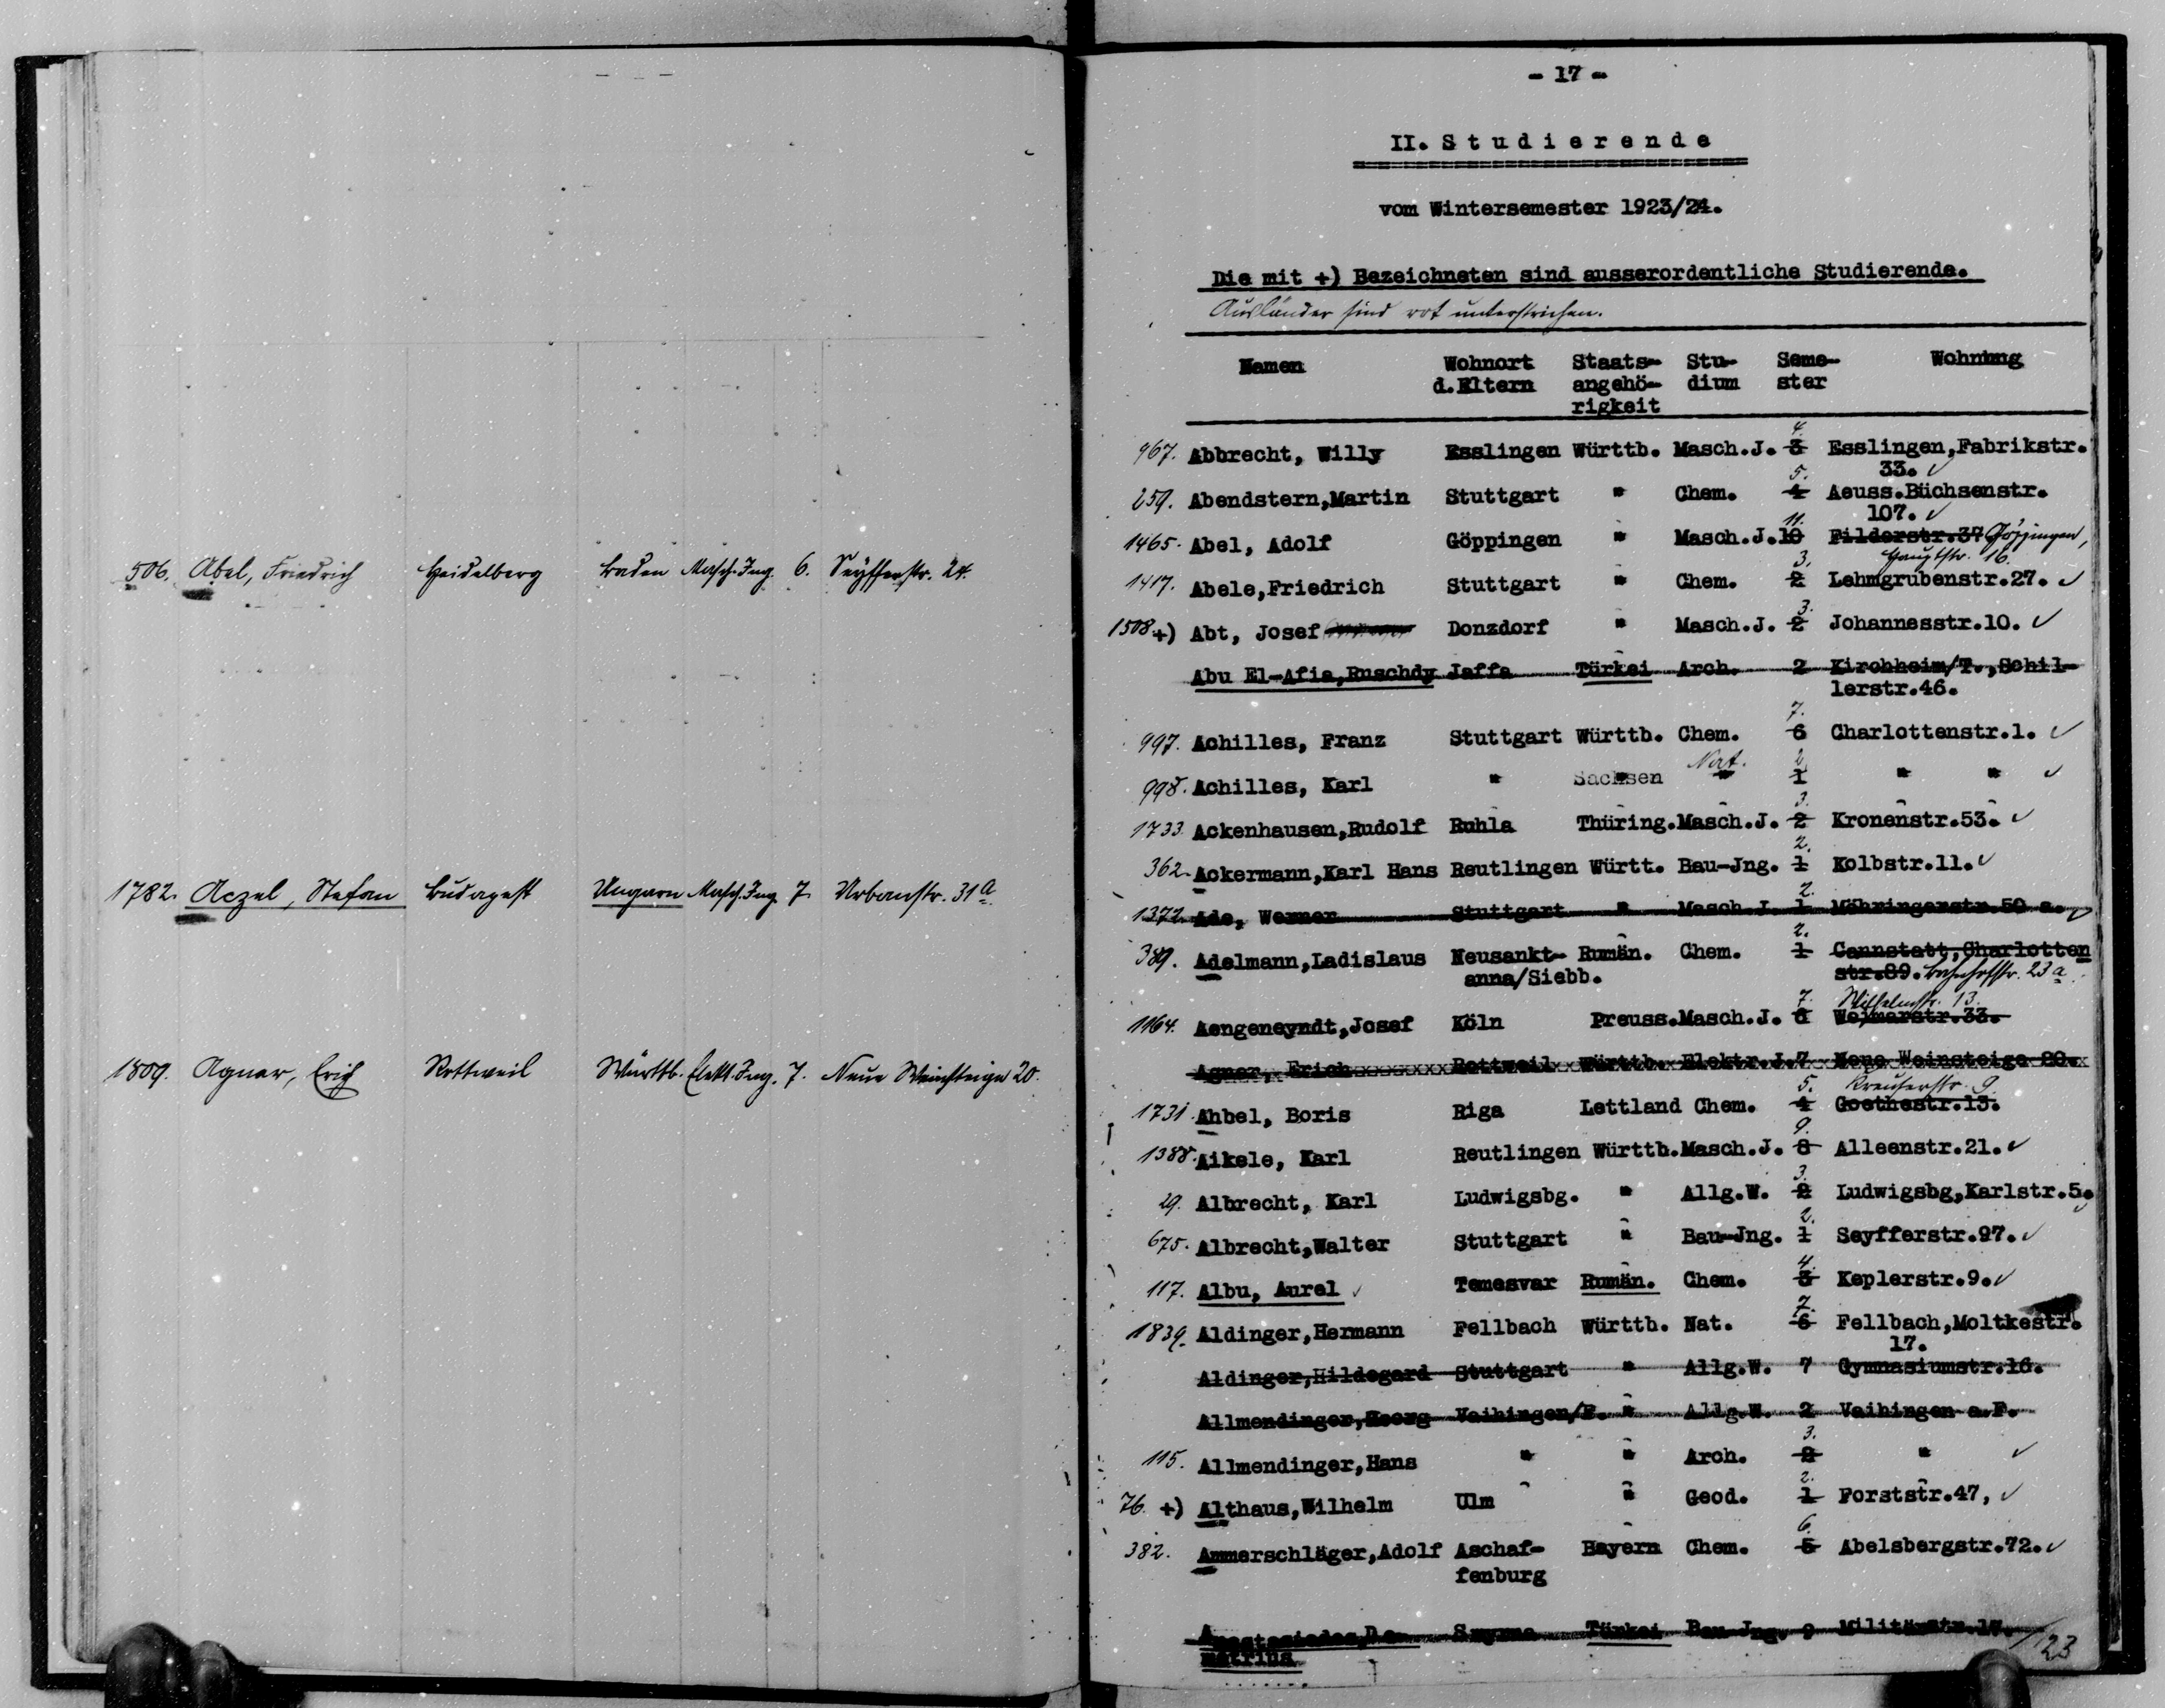 506. Abel, Friedrich Heidelberg Baden Masch. Ing. 6. Seyfferstr. 24.
1782. Aczel, Stefan Budapest Ungarn Masch. Ing. 7. Urbanstr. 31a
1809. Agner, Erich Rottweil Württb. Elekt. Ing. 7. Neue Weinsteige 20.
- 17 -
II. Studierende
vom Wintersemester 1923/24.
Die mit +) Bezeichneten sind ausserordentliche Studierende.
Ausländer sind rot unterstrichen.
Namen Wohnort Staats- Stu- Seme- Wohnung
d.Eltern angehö- dium ster
rigkeit
4.
967. Abbrecht, Willy Esslingen Württb. Masch.J. 3 Esslingen,Fabrikstr.
5. 33. ✓
259. Abendstern,Martin Stuttgart " Chem. 4 Aeuss.Büchsenstr.
11. 107. ✓
1465. Abel, Adolf Göppingen " Masch.J.10 Filderstr.37 Göppingen,
3. Hauptstr. 16.
1417. Abele,Friedrich Stuttgart " Chem. 2 Lehmgrubenstr.27. ✓
3.
1508 +) Abt, Josef Donzdorf " Masch.J. 2 Johannesstr.10. ✓
Abu El-Afia,Ruschdy Jaffa Türkei Arch. 2 Kirchheim/T.,Schil-
lerstr.46.
7.
997. Achilles, Franz Stuttgart Württb. Chem. 6 Charlottenstr.1. ✓
Nat. 2
998. Achilles, Karl " Sachsen " 1 " " ✓
3.
1733. Ackenhausen,Rudolf Ruhla Thüring.Masch.J. 2 Kronenstr.53. ✓
2.
362. Ackermann,Karl Hans Reutlingen Württ. Bau-Jng. 1 Kolbstr.11. ✓
2.
1372. Ade, Werner Stuttgart " Masch.J. 1 Möhringerstr.50 a. ✓
2.
389. Adelmann,Ladislaus Neusankt- Rumän. Chem. 1 Cannstatt,Charlotten
anna/Siebb. str.89. Bahnhofstr. 23a.
7. Wilhelmstr. 13.
1164. Aengeneyndt,Josef Köln Preuss.Masch.J. 6 Weimarstr.33.
Agner, Erich Rottweil Württb. Elektr.J.7 Neue Weinsteige 20.
5. Kreuserstr. 9.
1731. Ahbel, Boris Riga Lettland Chem. 4 Goethestr.13.
9.
1388. Aikele, Karl Reutlingen Württb.Masch.J. 8 Alleenstr.21. ✓
3.
29. Albrecht, Karl Ludwigsbg. " Allg.W. 2 Ludwigsbg,Karlstr.5. ✓
2.
675. Albrecht,Walter Stuttgart " Bau-Jng. 1 Seyfferstr.97. ✓
4.
117. Albu, Aurel ✓ Temesvar Rumän. Chem. 3 Keplerstr.9. ✓
7.
1839. Aldinger,Hermann Fellbach Württb. Nat. 6 Fellbach,Moltkestr.
17.
Aldinger,Hildegard Stuttgart " Allg.W. 7 Gymnasiumstr.16.
Allmendinger,Georg Vaihingen/F. " Allg.W. 2 Vaihingen a.F.
3.
115. Allmendinger,Hans " " Arch. 2 " ✓
2.
76. +) Althaus,Wilhelm Ulm " Geod. 1 Forststr.47, ✓
6.
382. Ammerschläger,Adolf Aschaf- Bayern Chem. 5 Abelsbergstr.72. ✓
fenburg
Anastasiades,De- Smyrna Türkei Bau-Jng. 9 Militärstr.17.
metrius
1/23